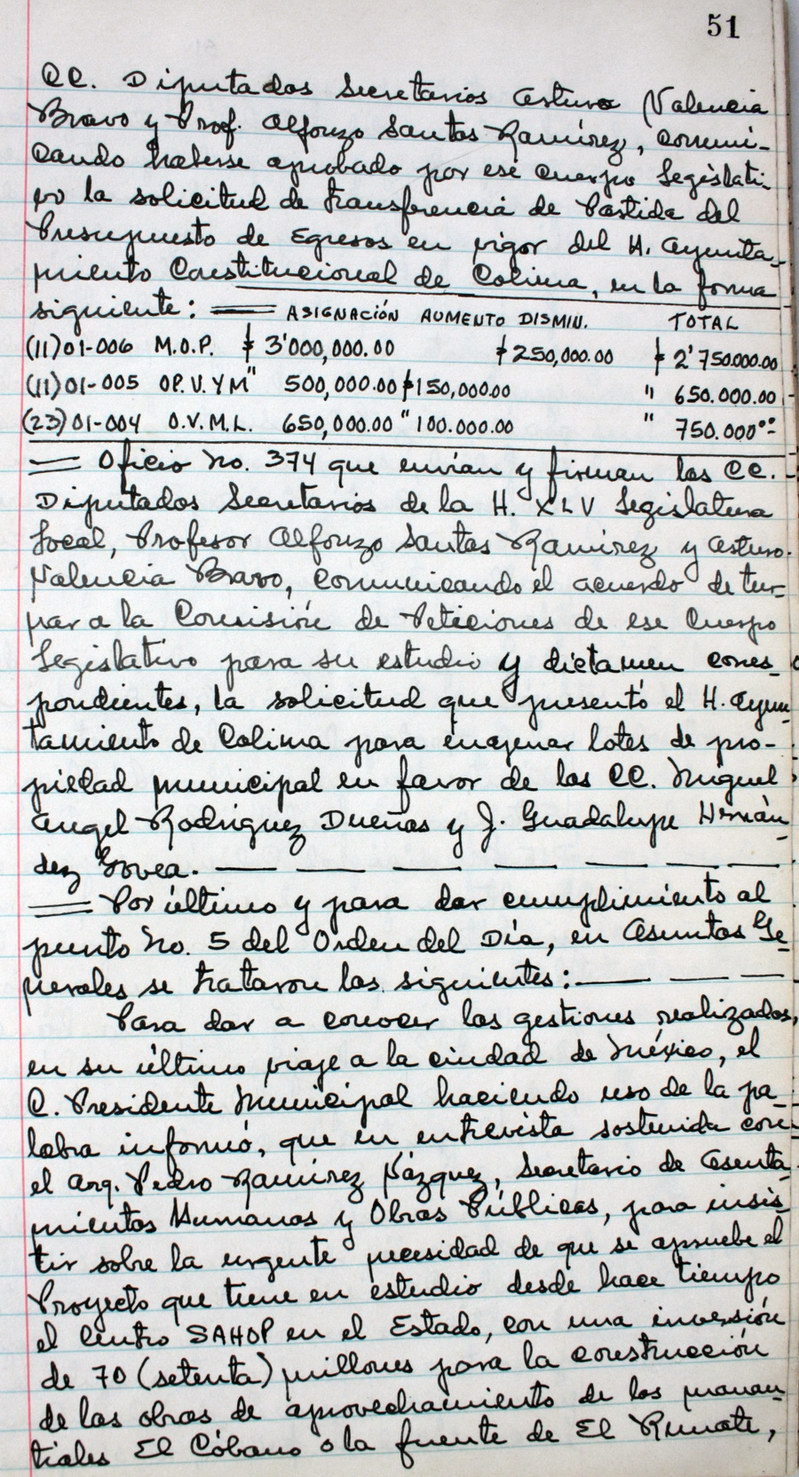 51
CC. Diputados Secretarios Arturo Valencia
Bravo y Prof. Alfonzo Santos Ramírez, comuni-
cando haberse aprobado por ese Cuerpo Legislati
vo la solicitud de transferencia de Partida del
Presupuesto de Egresos en vigor del H. Ayunta-
miento Constitucional de Colima, en la forma
siguiente: ══ ASIGNACIÓN AUMENTO DISMIN. TOTAL
(11) 01-006 M.O.P. $ 3'000,000.00 $ 250,000.00 $ 2'750.000.00
(11) 01-005 OP. V. Y M " 500,000.00 $ 150,000.00 " 650.000.00
(23) 01-004 O.V.M.L. 650,000.00 " 100.000.00 " 750.000.00
══ Oficio No. 374 que envían y firman los CC.
Diputados Secretarios de la H. XLV Legislatura
Local, Profesor Alfonzo Santos Ramírez y Arturo
Valencia Bravo, comunicando el acuerdo de tur-
nar a la Comisión de Peticiones de ese Cuerpo
Legislativo para su estudio y dictamen corres-
pondientes, la solicitud que presentó el H. Ayun
tamiento de Colima para enajenar lotes de pro-
piedad municipal en favor de los CC. Miguel
Angel Rodríguez Dueñas y J. Guadalupe Hernán
dez Govea. — — — — — — —
══ Por último y para dar cumplimiento al
punto No. 5 del Orden del Día, en Asuntos Ge-
nerales se trataron los siguientes: — — —
Para dar a conocer las gestiones realizadas,
en su último viaje a la ciudad de México, el
C. Presidente Municipal haciendo uso de la pa-
labra informó, que en entrevista sostenida con
el Arq. Pedro Ramírez Vázquez, Secretario de Asenta-
mientos Humanos y Obras Públicas, para insis-
tir sobre la urgente necesidad de que se apruebe el
Proyecto que tiene en estudio desde hace tiempo
el Centro SAHOP en el Estado, con una inversión
de 70 (setenta) millones para la construcción
de las obras de aprovechamiento de los manan-
tiales El Cóbano o la fuente de El Remate,